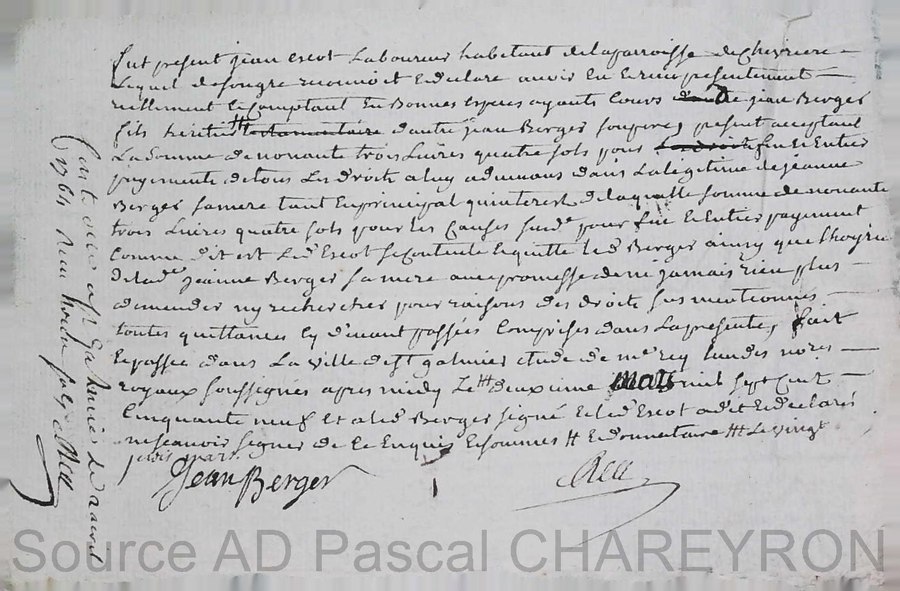 fut present jean escot Laboureur habitant delaparroisse de Chevriere
Lequel desongre reconnoit Edeclare avoir Eu Ereceu presentement
reellement Ecomptant En Bonnes especes ayants Cours jean Berger
fils heritier tt testamentaire dautre jean Berger sonpere, present acceptant
La Somme de nonante trois Livres quatre sols pour fin Et Entier
payements detous Les droits aluy advenans dans La legitime de jeanne
Berger samere tant En principal quinterest de laquelle somme de nonante
trois Livres quatre sols pour Les Causes susd.e pour fin Et Entier payement
Comme dit est Led. Escot se Contente Equitte led. Berger ainsy que L'hoyrie
delad.e jeanne Berger samere avec promesse de ni jamais rien plus
demender ny rechercher pour raisons des droits susmentionnés
toutes quittances Cy devant passées Comprises dans La presente, fait
Epassée dans La Ville de St galmier etude de me rey Lun des nores
royaux soussignés apres midy Le ttt deuxieme mars mil sept Cent
Cinquante neuf Et aled. Berger signé Eled. Escot adit Edeclaré
ne scavoir signer de Ce Enquis Esommé tt Edonnataire ttt Le vingt
Jean Berger
Rey
Cont.
Source AD Pascal CHAREYRON